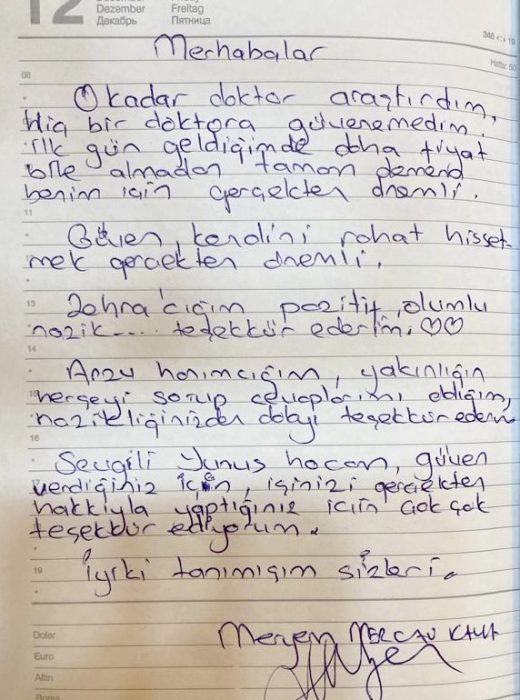 12
Dezember Freitag
Декабрь Пятница
346
Hafta: 50
Merhabalar
08
O kadar doktor araştırdım,
Hiç bir doktora güvenemedim.
ilk gün geldiğimde daha fiyat
bile almadan tamam demem
benim için gerçekten önemli.
11
Güven, kendini rahat hisset-
mek gerçekten önemli.
13
Zehra'cığım pozitif, olumlu
nazik.... teşekkür ederim. ♡♡
14
Arzu hanımcığım, yakınlığın
herşeyi sorup cevaplarımı aldığım,
nazikliğinizden dolayı teşekkür ederim
16
Sevgili Yunus hocam, güven
verdiğiniz için, işinizi gerçekten
hakkıyla yaptığınız için çok çok
teşekkür ediyorum.
19
İyiki tanımışım sizleri.
Dolar
Meryem
Euro
Altın